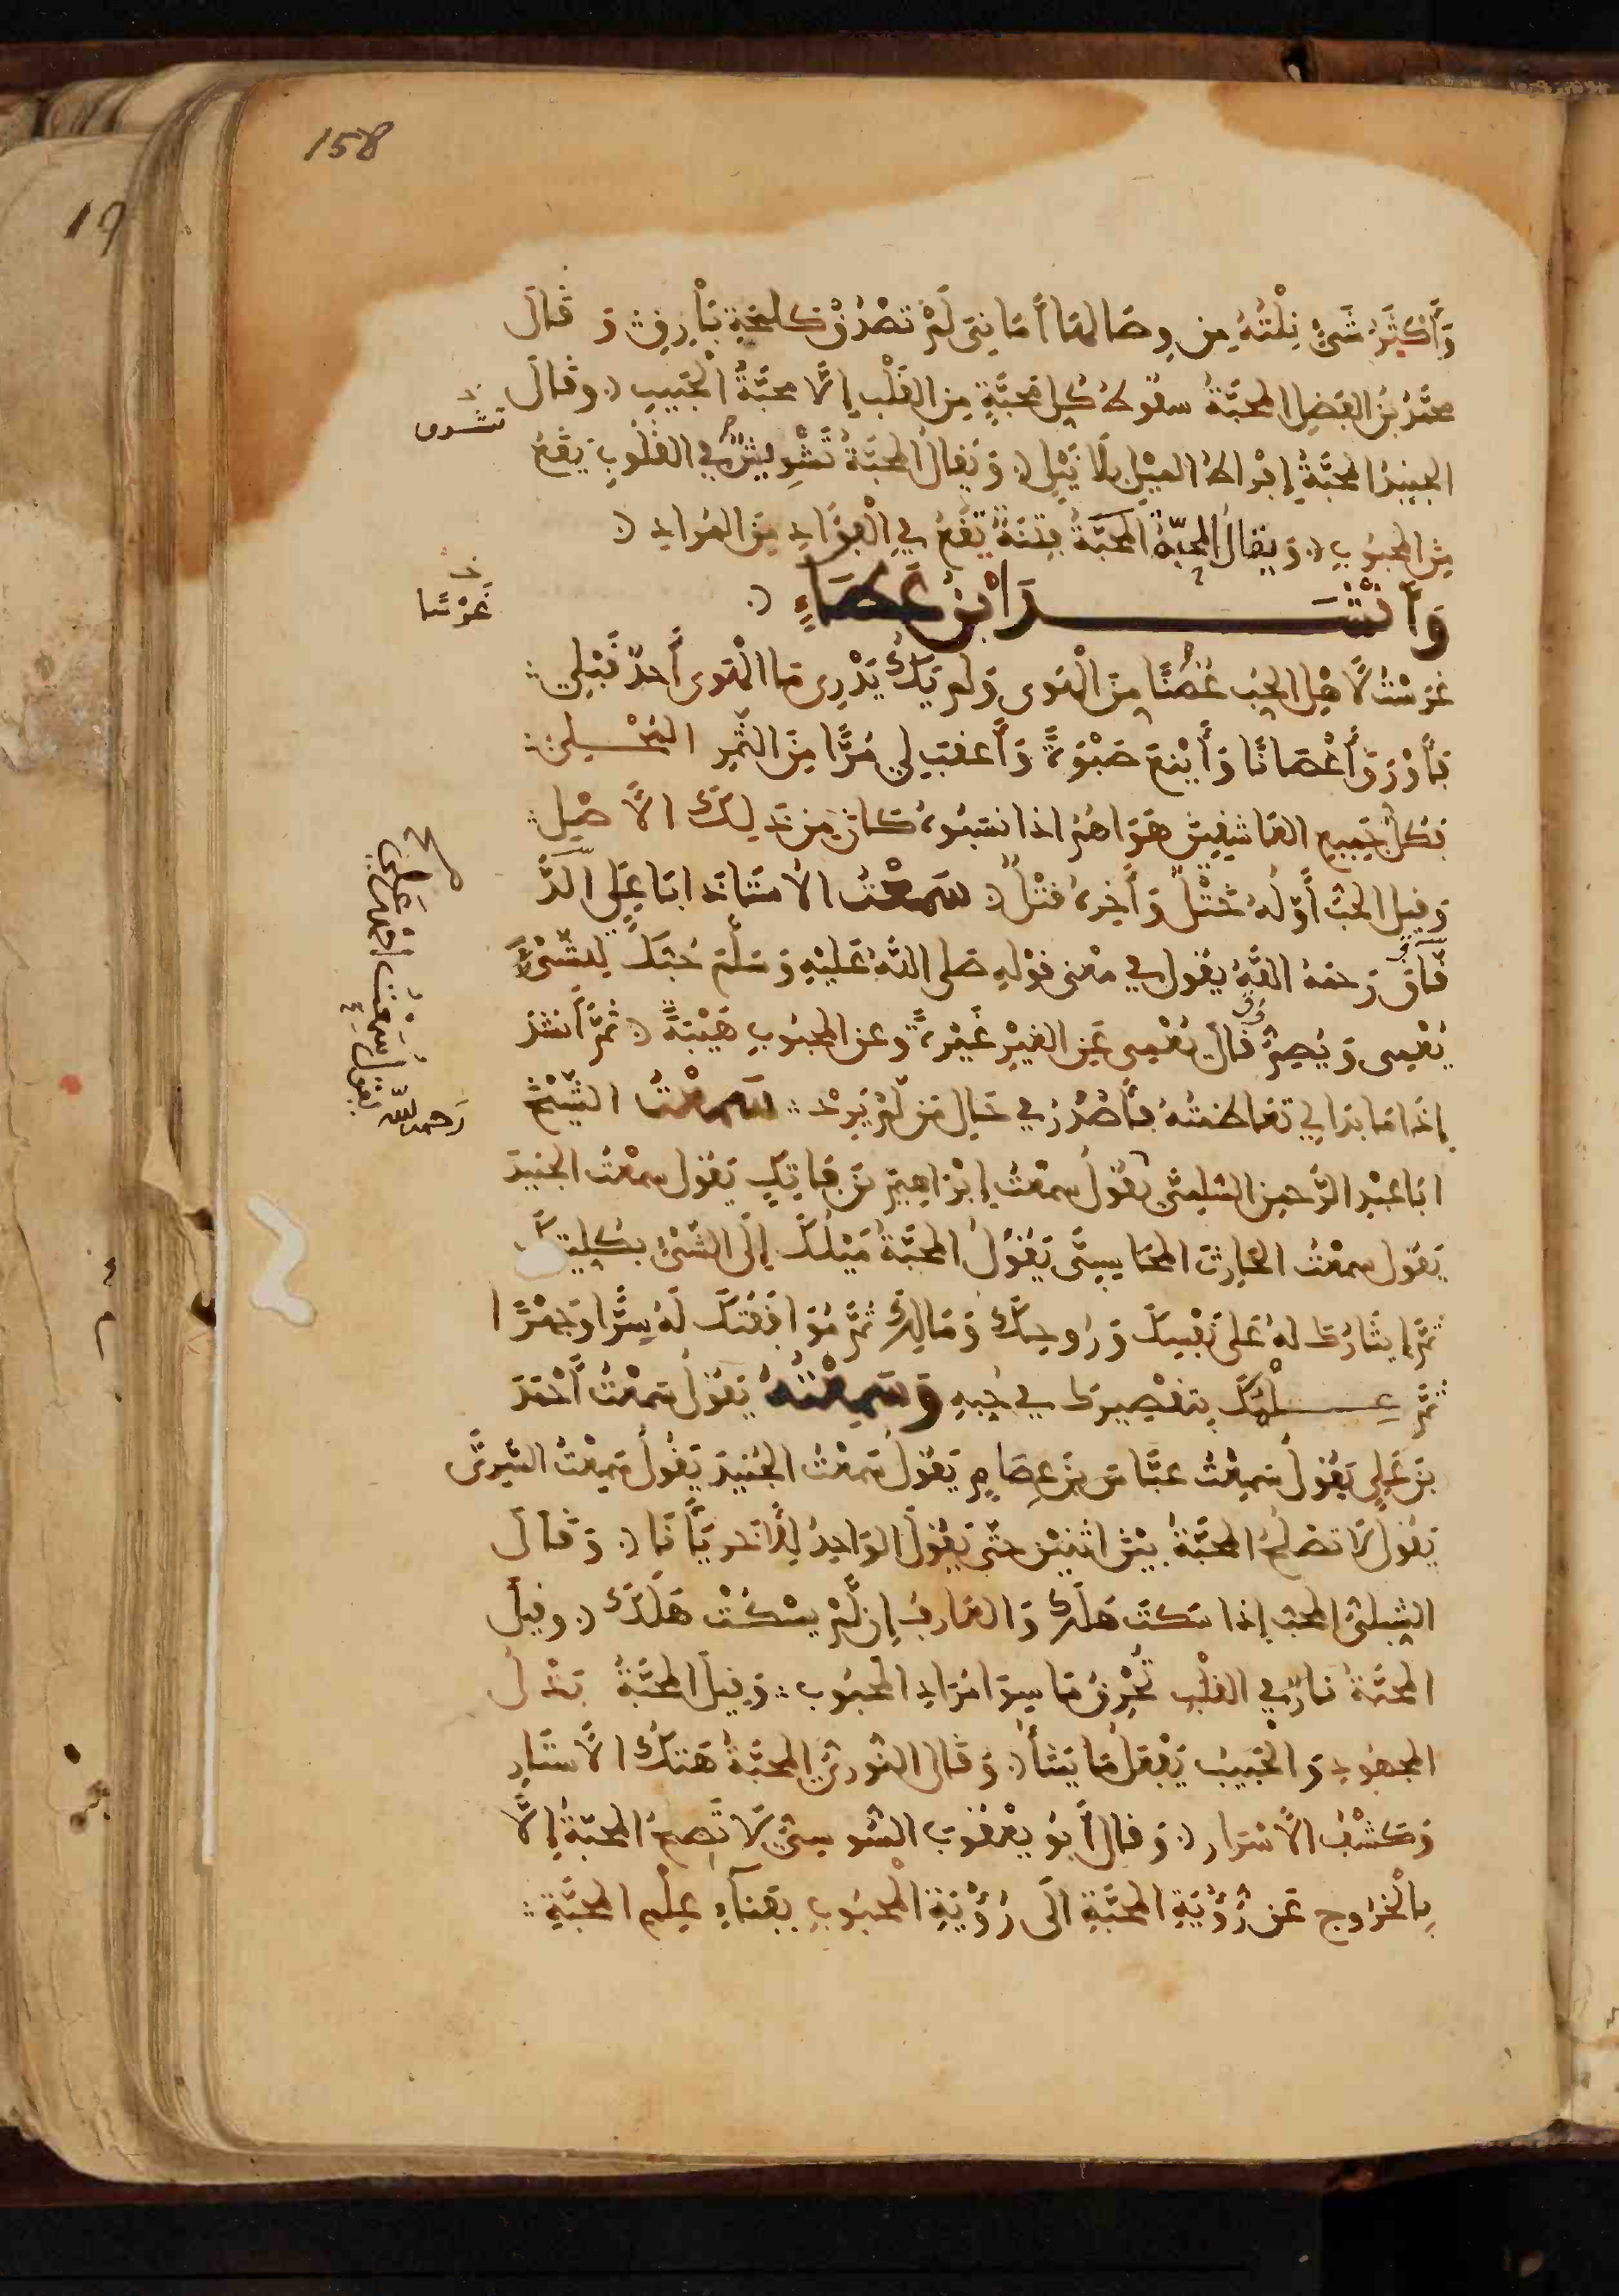 158
19
وَأَكْثَرُ شَيْءٍ نِلْتُهُ مِن وِصَالِهَا أَمَانِيَ لَمْ تَصْدُقْ كَلَمْحَةِ بَارِقِ وَقَالَ
محمّد بن الفضل المحبَّةُ سقوط كل محبَّةٍ من القلب إلّا محبَّةُ الحَبيبِ وقال
تشوى
الجنيد المحبَّةُ إفراط الميل بلا نَيْلٍ وَيقال المحبَّةُ تَشْوِيشٌ في القلوبِ يَقَعُ
من المحبوب وَيقال المحبّة المحبّة فِتنَةٌ تَقَعُ في الْفُؤَادِ مِنَ المُرادِ
وَأَنْشَدَ ابْنُ عَطَاءٍ
غرسًا
غَرَسْتُ لأَهْلِ الحُبِّ غُصْنًا مِنَ الْهَوى وَلم يَكُ يَدْرِى مَا الْهَوى أَحدٌ قَبْلِي
فَأَوْرَقَ أَغْصَانًا وَأَيْنَعَ صَبْوَةً وَأَعقبَ لِي مُرًّا مِنَ الثَّمَرِ المُحْلِي
فكل جَمِيعِ العَاشِقِينَ هَوَاهُمُ اذا نسَبُوهُ كَانَ مِن ذَلِكَ الأَصْلِ
وَقيل الحُبّ أَوّلُهُ خَتْلٌ وَآخِرُهُ قَتْلٌ سَمِعْتُ الأستاذ ابَا عَلِي الدَّ
قَّاق رَحمهُ اللهُ يقول في معنى قوْلِهِ صَلى اللهُ عَلَيْهِ وَسَلَّمَ حُبُّكَ لِلشَّيْءِ
يُعْمِى وَيُصِمُّ قالَ يُعْمِى عَنِ الغَيْرِ غَيْرَةً وعن المحبوبِ هَيْبَةً ثُمَّ أنشدَ
إِذَا مَا بَدَا لِي تَعَاظَمْتُهُ فأَصْدُرُ في حَالِ مَن لَمْ يَرِدْ سَمِعْتُ الشَّيْخَ
ابَا عَبْدِ الرَّحمن السُّلَمِيَّ يَقُولُ سمعْتُ إِبْرَاهِيمَ بْنَ فَاتِكٍ يَقُول سمعْتُ الجنيدَ
يَقول سمعْتُ الحَارِثَ المحَاسِبِيَّ يَقُولُ المحبَّةُ مَيْلُكَ إِلَى الشَّيْءِ بكلِيتكَ
ثمَّ إِيثَارُكَ لهُ عَلى نَفْسِكَ وَرُوحِكَ وَمَالِكَ ثُمَّ مُوَافَقَتكَ لَهُ سِرًّا وَجَهْرًا
ثمَّ عِلْمُكَ بِتقْصِيرِكَ في حُبِهِ وَسَمِعْتُهُ يَقُولُ سَمِعْتُ أَحْمَدَ
بنَ عَلِي يَقُولُ سَمِعْتُ عبَّاسَ بْنَ عِصَامٍ يَقُولُ سَمعْتُ الجُنَيدَ يَقُولُ سَمِعْتُ السَّرِيَّ
يَقُول لَا تصْلُحُ المحبَّةُ بيْنَ اثنَيْنِ حتّى يَقُولَ الوَاحِدُ لِلآخَر يَا أَنَا وَقَالَ
الشبلىُّ المحب إِذا سَكتَ هَلَكَ وَالعَارِفُ إِن لَّمْ يسْكُتْ هَلَكَ وقيل
المحبَّةُ نارٌ في القلْبِ تُحْرِقُ مَا سِوَا مُرَادِ المحبُوب وَقِيلَ المحبَّةُ بَذْلُ
المجهُودِ وَالْحَبِيبُ يَفْعَلُ مَا يَشَأُ وَقَالَ النُّورِيُّ المحبَّةُ هَتكُ الأَسْتَارِ
وَكَشْفُ الأَسْرَار وَقال أَبو يعْقُوبَ السُّوسِيُّ لَا تَصِحُّ المحَبَّةُ إِلَّا
بِالْخرُوج عَن رُؤْيَةِ المحَبَّةِ الَى رُؤْيَةِ الْمحْبُوبِ بِفَنَاءِ عِلْمِ المحَبَّةِ
رَحمه الله يقول